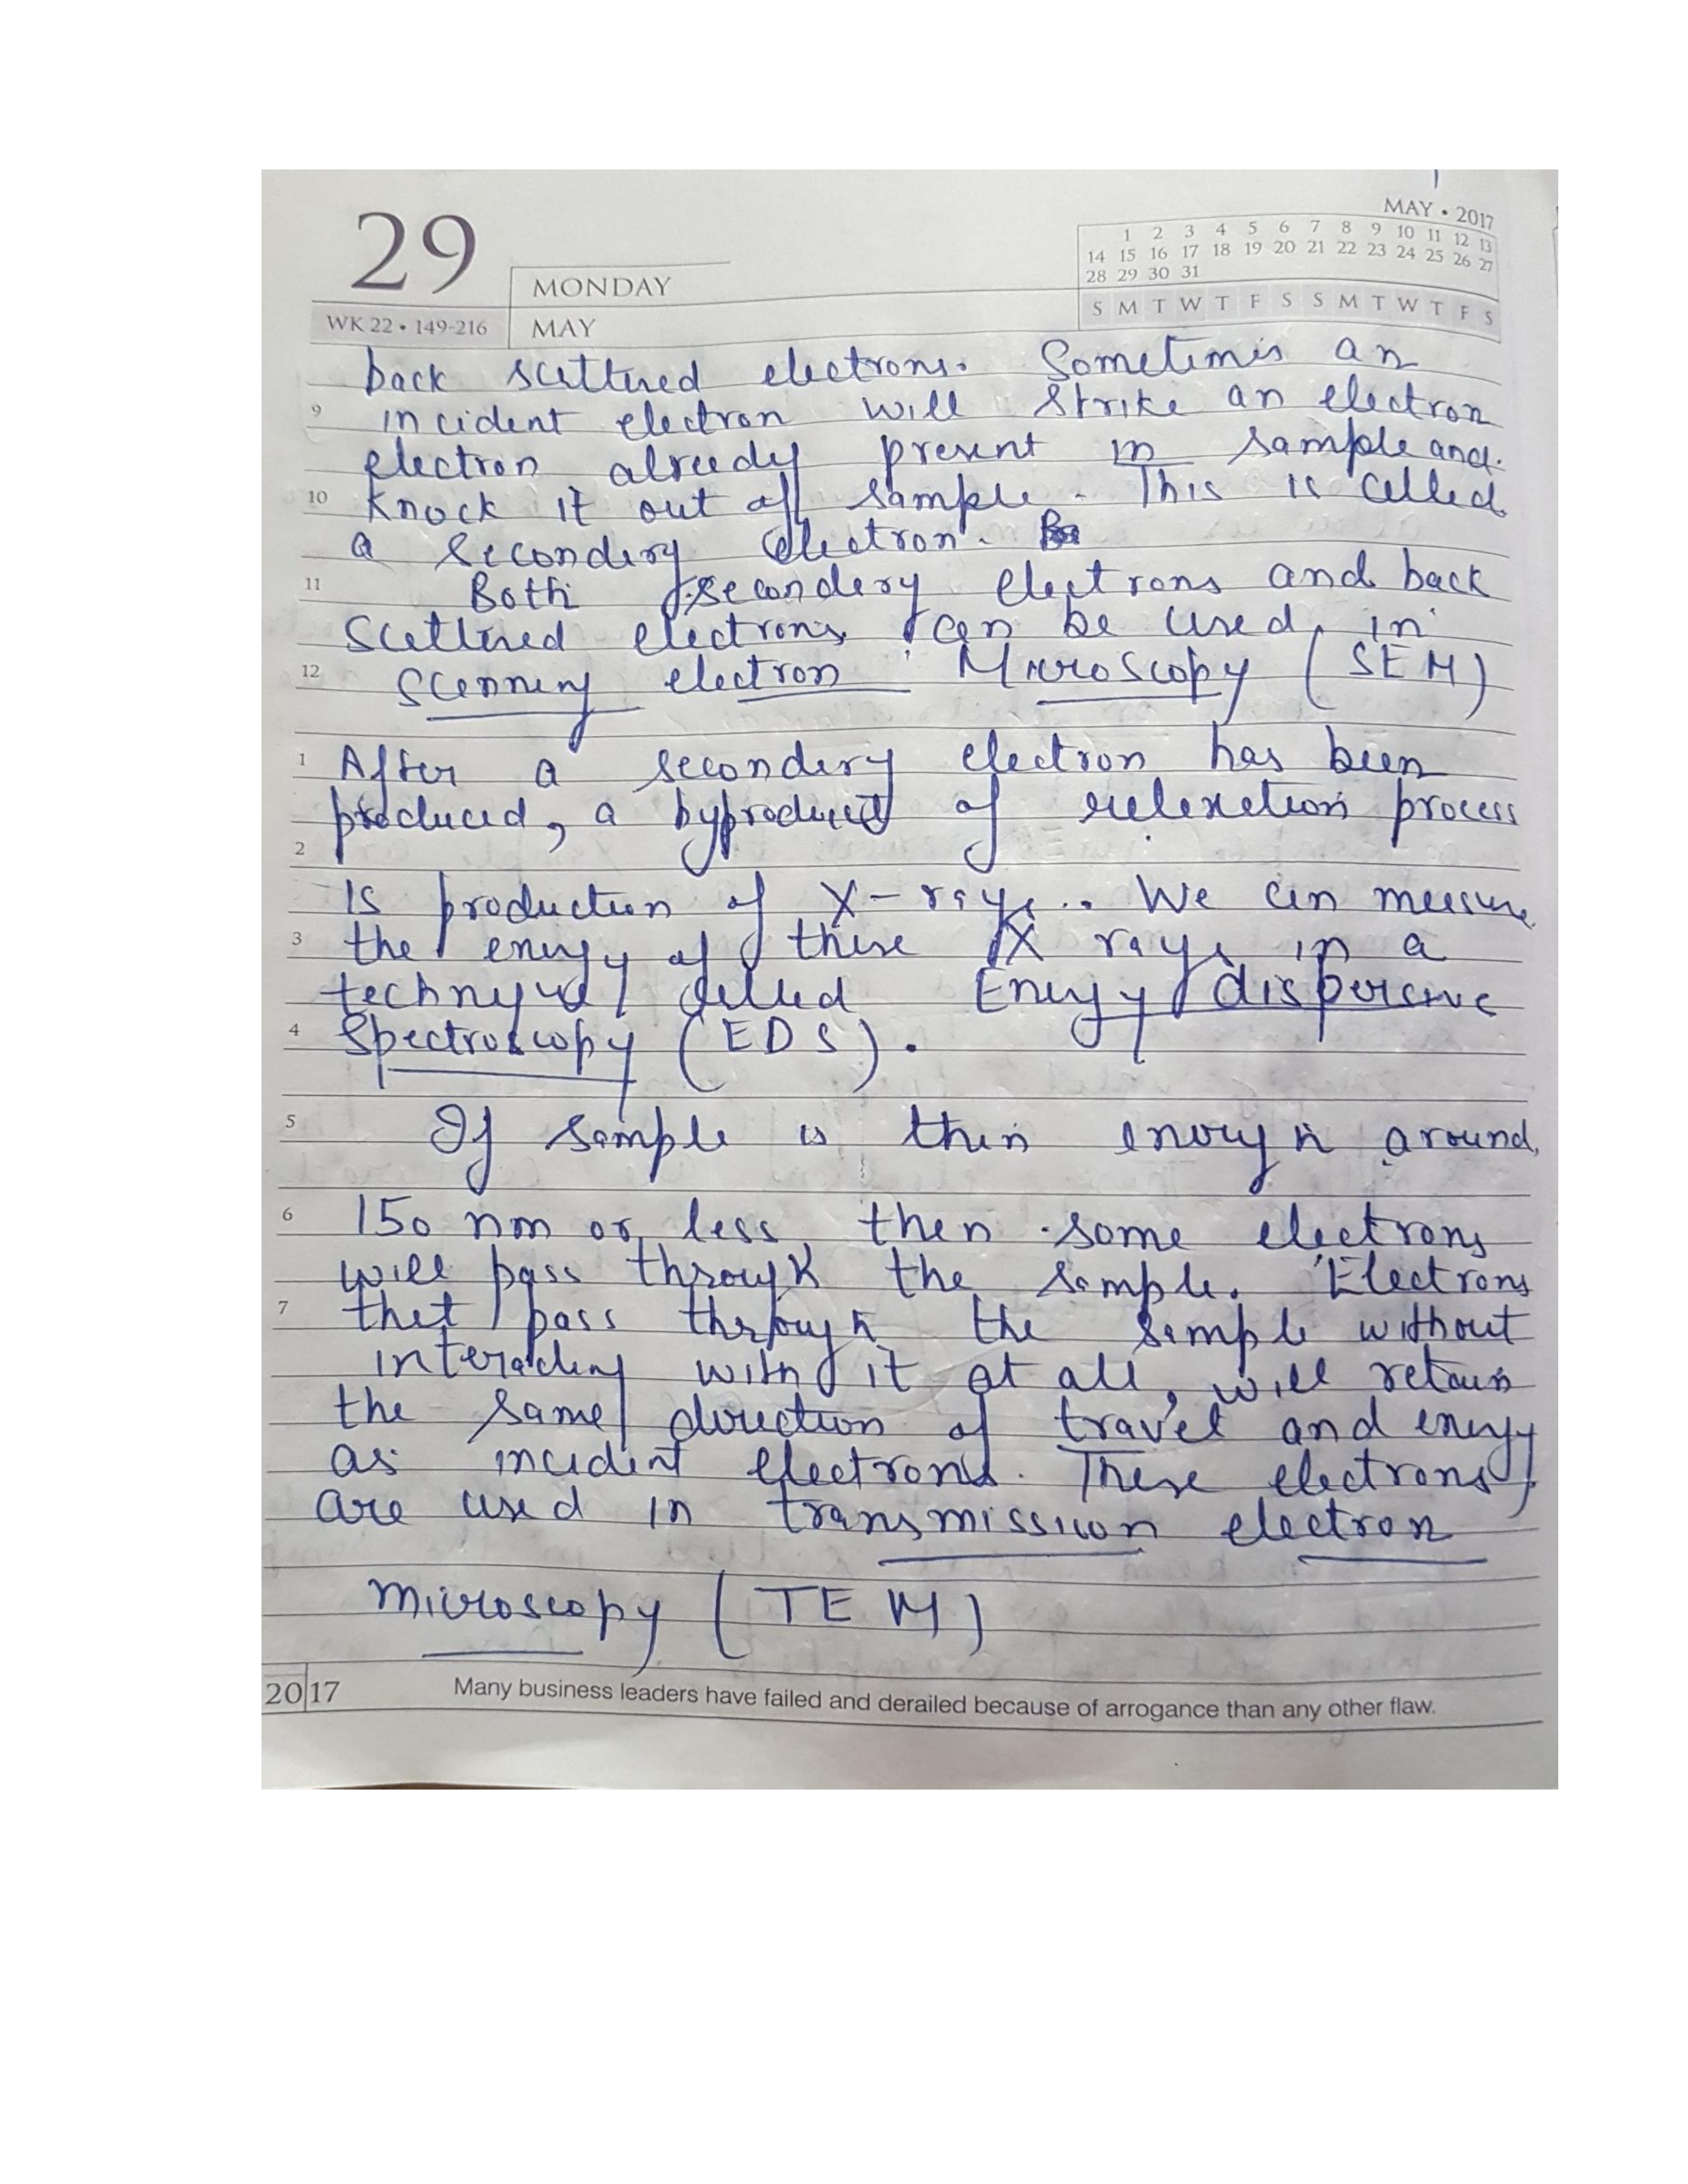 29
MONDAY
WK 22 • 149-216
MAY
MAY • 2017
1 2 3 4 5 6 7 8 9 10 11 12 13
14 15 16 17 18 19 20 21 22 23 24 25 26 27
28 29 30 31
S M T W T F S S M T W T F S
back scattered electrons. Sometimes an
9 incident electron will strike an electron
electron already present in sample and
10 knock it out of sample. This is called
a secondary electron.
11 Both secondary electrons and back
scattered electrons can be used in
12 Scanning electron Microscopy (SEM)
1 After a secondary electron has been
produced, a byproduct of relaxation process
2
is production of X-rays.. We can measure
3 the energy of these X rays in a
technique called Energy dispersive
4 Spectroscopy (EDS).
5 If sample is thin enough around
6 150 nm or less then some electrons
will pass through the sample. Electrons
7 that pass through the sample without
interacting with it at all, will retain
the same direction of travel and energy
as incident electrons. These electrons
are used in transmission electron
microscopy (TEM)
2017 Many business leaders have failed and derailed because of arrogance than any other flaw.